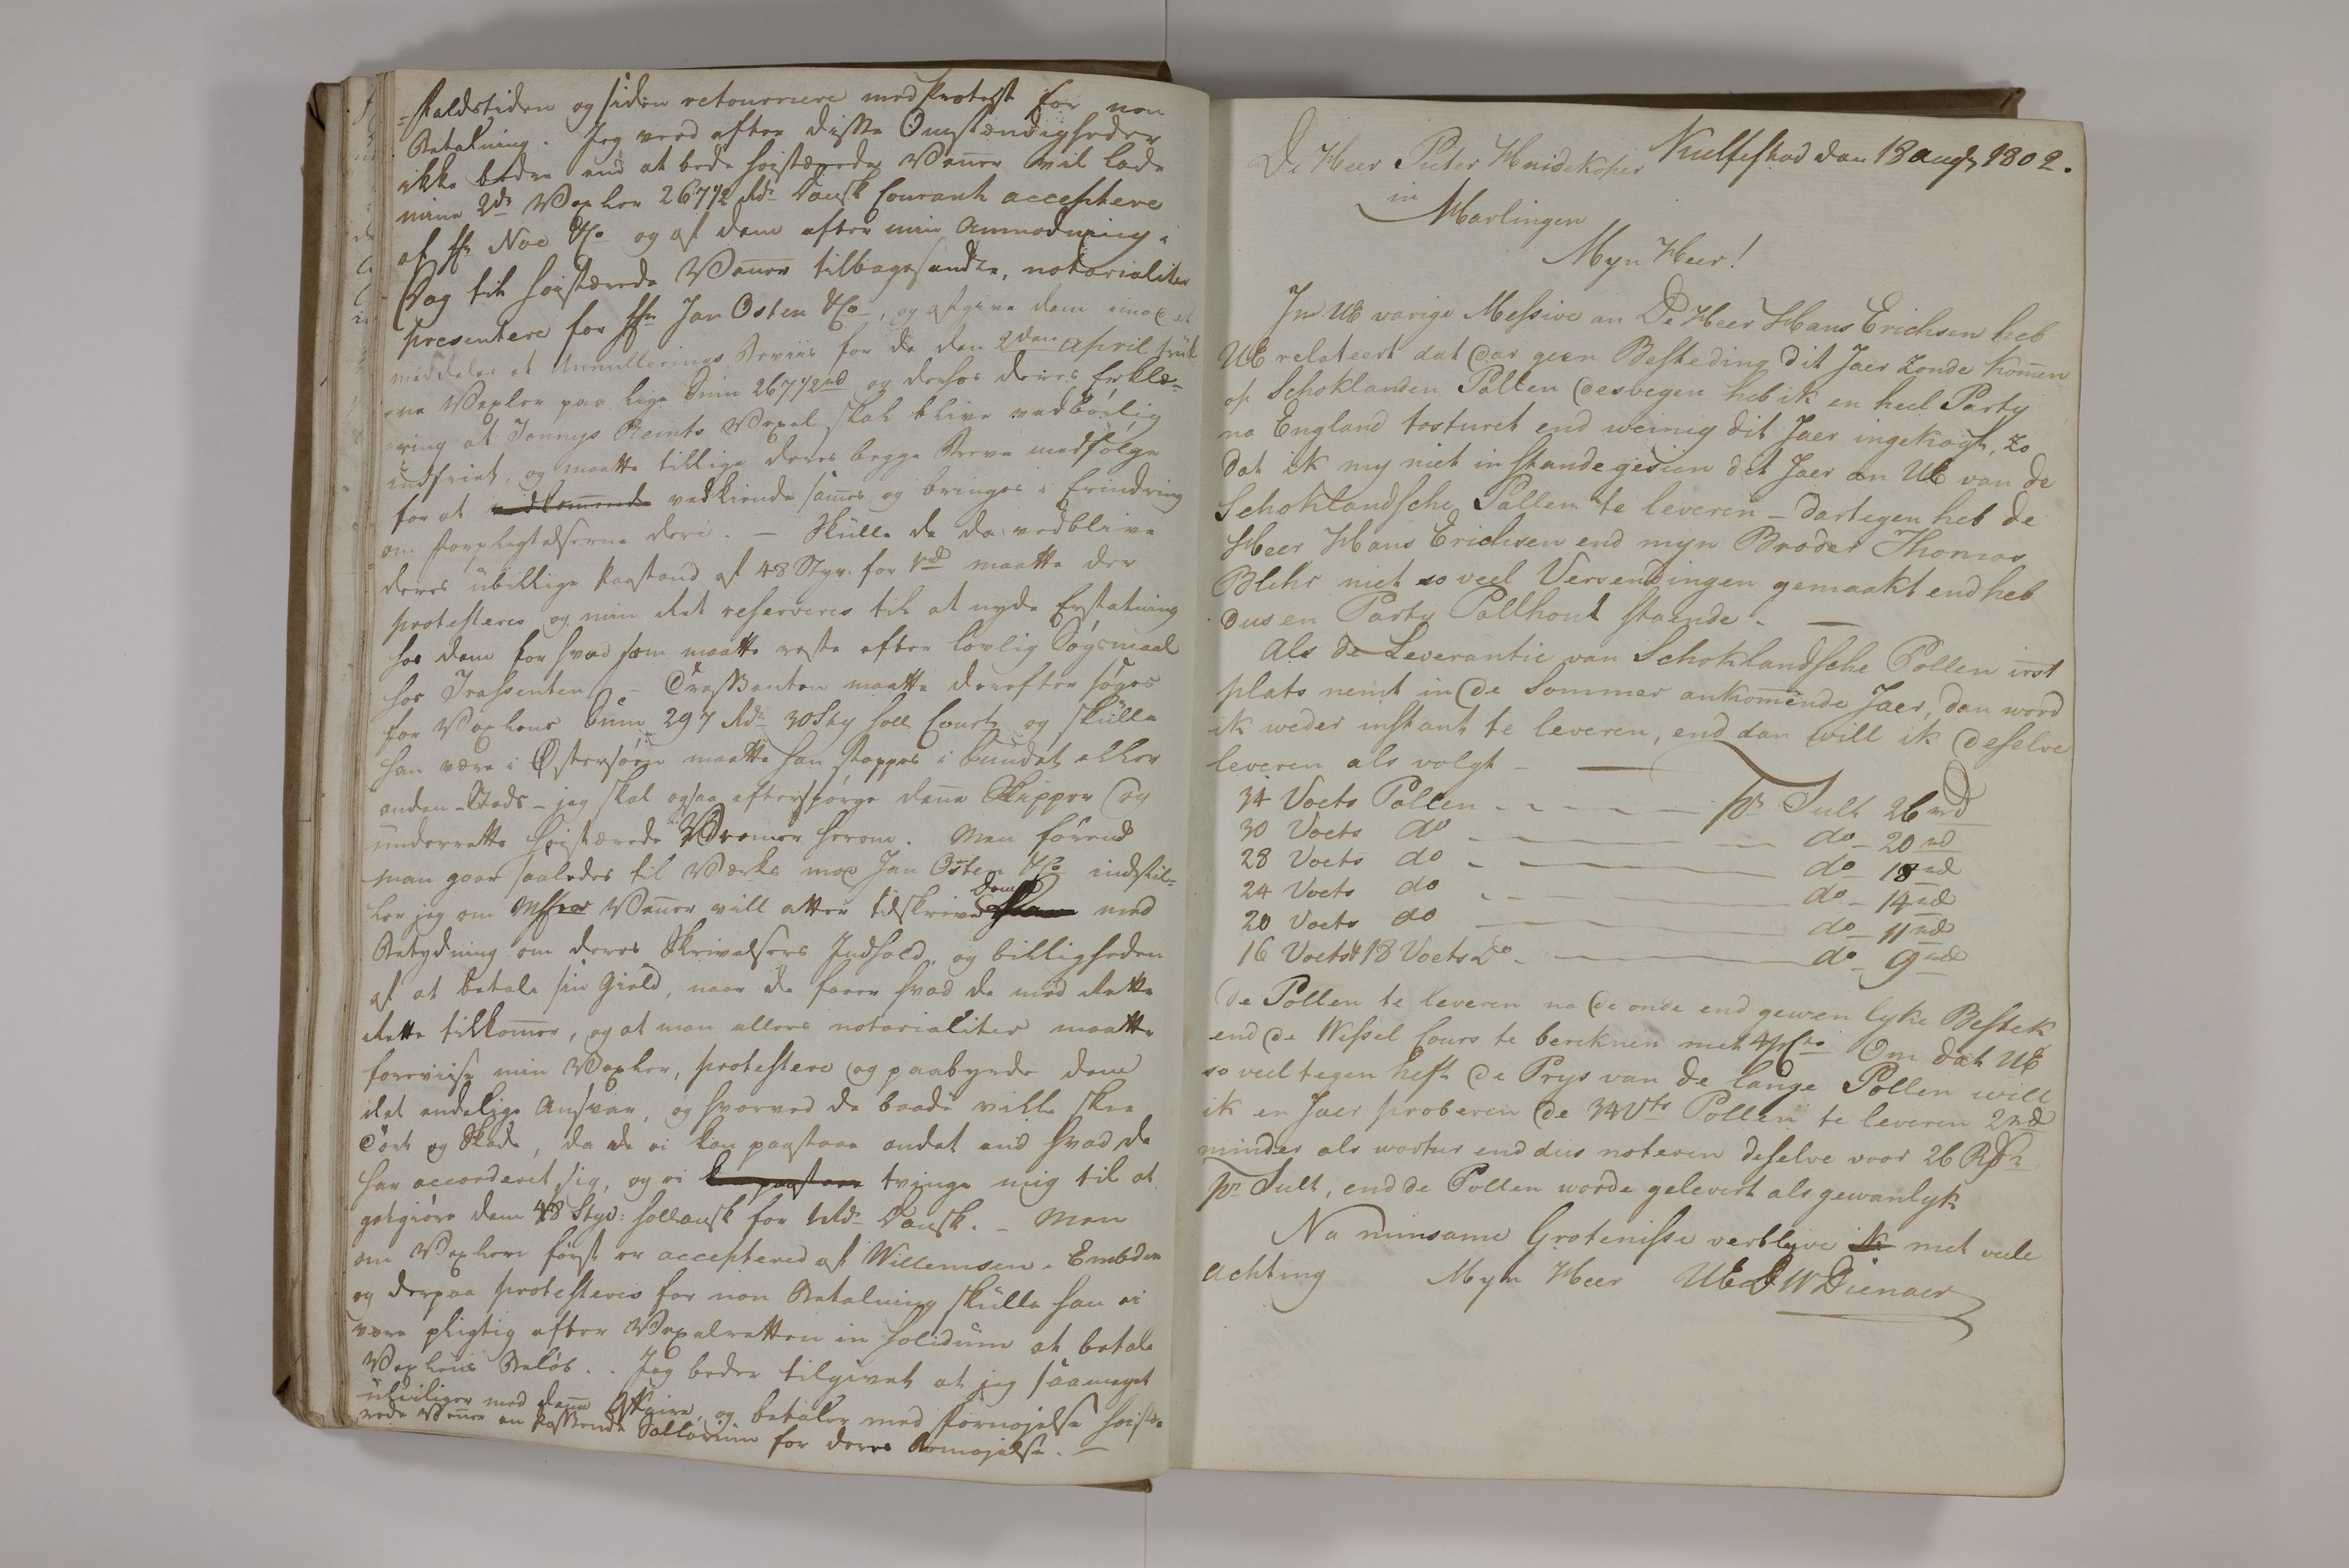 =faldstiden og siden retournere med Protest for non
Betalning. Jeg veed efter disse Omstændigheder
ikke bedre end at bede høistærede Vañer vil lade
mine 2de Vexler 267 1/2 Rdr Dansk Courant acceptere
af Hr Noe & Co og af dem efter min Anmodning i
Dag til høistærede Vañer tilbagesendte, notarialiter
presentere for Hr Jan Osten & Co, og afgive dem imod at
meddeles et Annullerings Beviis for de den 2den April
=ne Vexler paa lige Sum 267 1/2 rd og derhos deres Erklæ=
=ring at Tonnys Reints Vexel skal blive vedbørlig
indfriet, og maatte tillige deres begge Breve medfølge
for at vedkiende sam̄es og bringes i Erindring
om Forpligtelserne deri. — Skulle de da vedblive
deres ubillige Paastand af 48 Styv. for 1 rd maatte der
protesteres og min Ret reserveres til at nyde Erstatning
hos dem for hvad som maatte reste efter lovlig Søgsmaal
hos Trassenten — Trassenten maatte derefter søges
for Vexlens Sum 297 Rdr 30 Sty holl Court og skulle
han være i Østersøen maatte han stoppes i Sundet eller
anden Steds — jeg skal ogsaa efterspørge deñe Skipper og
underrette høistærede Vañer herom. Men førend
man gaar saaledes til Værks mod Jan Osten & Co indstil=
ler jeg om Vañer vill atter tilskrive Dem med
Betydning om deres Skrivelsers Indhold, og billigheden
af at betale sin Gield, naar de faaer hvad de med Rette
Rette tilkom̄er, og at man ellers notarialiter maatte
foreviise min Vexler, protestere og paabyrde dem
alt endelige Ansvar, og hvorved de baade ville skee
Tort og Skade, da de ei kan paastaae andet end hvad de
har accorderet sig, og ei kan paastaae tvinge mig til at
godgiøre dem 48 Styv: hollansk for 1 Rdr Dansk. — Men
om Vexlen først er accepteret af Willemsen i Embden
og derpaa protesteres for non Betalning skulle han ei
være pligtig efter Vexelretten in solidum at betale
Vexlens Beløb.. Jeg beder tilgivet at jeg saa meget
uleiliger med deñe Affaire, og betaler med Fornøielse høistæ=
rede Vañer en passende Sallarium for deres Bemøielse. —
De Heer Pieter Huidekoper
den 18 augt 1802.
in
Harlingen
Myn Heer!
In UE varige Messive an De Heer Hans Erichsen heb
UE relateert dat dar geen Besteding dit Jaer zonde kom̄en
op Schoklanden Pallen desvegen heb ik en heel Party
na England tosturet end weinig dit Jaer ingekogt, zo
dat ik my niet in stande gesien dit Jaer an UE van de
Schoklandsche Pallen te leveren — dartegen heb de
Heer Hans Erichsen end myn Broder Thomas
Blehr niet so veel Versendingen gemaakt end heb
dus en Party Pallhout staende. —
Als de Leverantie van Schoklandsche Pollen irst
plats nemt in de Sommer ankom̄ende Jaer, dan word
ik weder instant te leveren, end dan will ik deselve
leveren als volgt —
34 Voets Pollen — pr Sult 26 rd
30 Voets do — do — 20 rd
28 Voets do — do — 18 rd
24 Voets do — do — 14 rd
20 Voets do — do — 11 rd
16 Voets & 18 Voets do — do — 9 rd
De Pollen te leveren na de onde end gewenlyke Bestek
end de Wessel Cours te bereknen met 4 pCto Om dat UE
so veel tegen heft de Prys van de lange Pollen will
ik en Jaer proberen de 34 Vts Pollen te leveren 2 rd
minder als vortur end dus noteren deselve voor 26 Rdr
pr Sult, end de Pollen worde gelevert als gewanlyk
Na minsame Grotenisse verblive met veele
Achting Myn Heer UE DW Dienaer